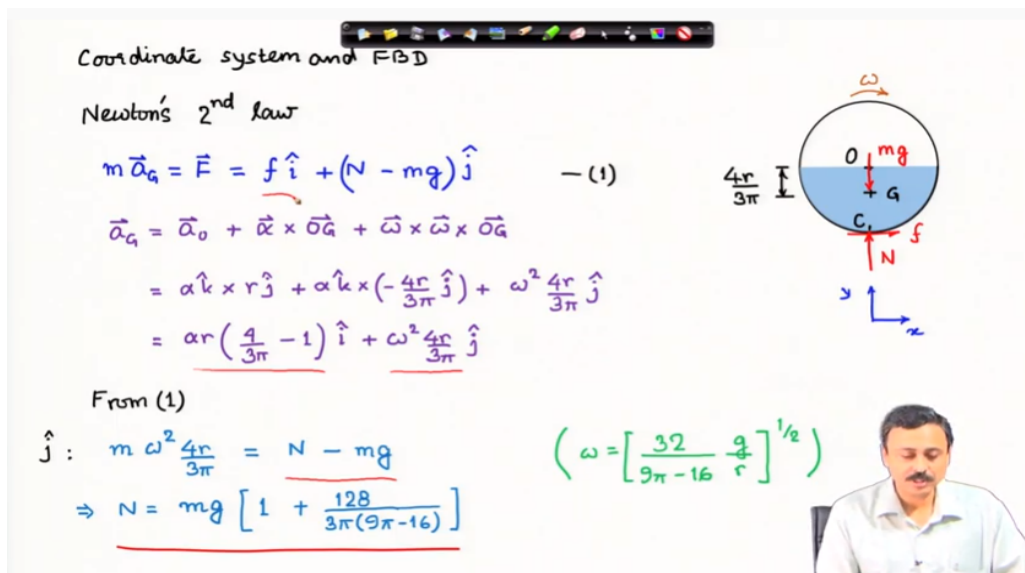 Coordinate system and FBD
Newton's 2nd law
m a⃗_G = F⃗ = f î + (N − mg) ĵ — (1)
a⃗_G = a⃗_O + α⃗ × OG⃗ + ω⃗ × ω⃗ × OG⃗
= α k̂ × r ĵ + α k̂ × (− 4r/3π ĵ) + ω² 4r/3π ĵ
= αr (4/3π − 1) î + ω² 4r/3π ĵ
From (1)
ĵ : m ω² 4r/3π = N − mg
⇒ N = mg [1 + 128/3π(9π−16)]
(ω = [32/9π−16 g/r]^1/2)
ω
O mg
4r/3π
G
C
f
N
y
x